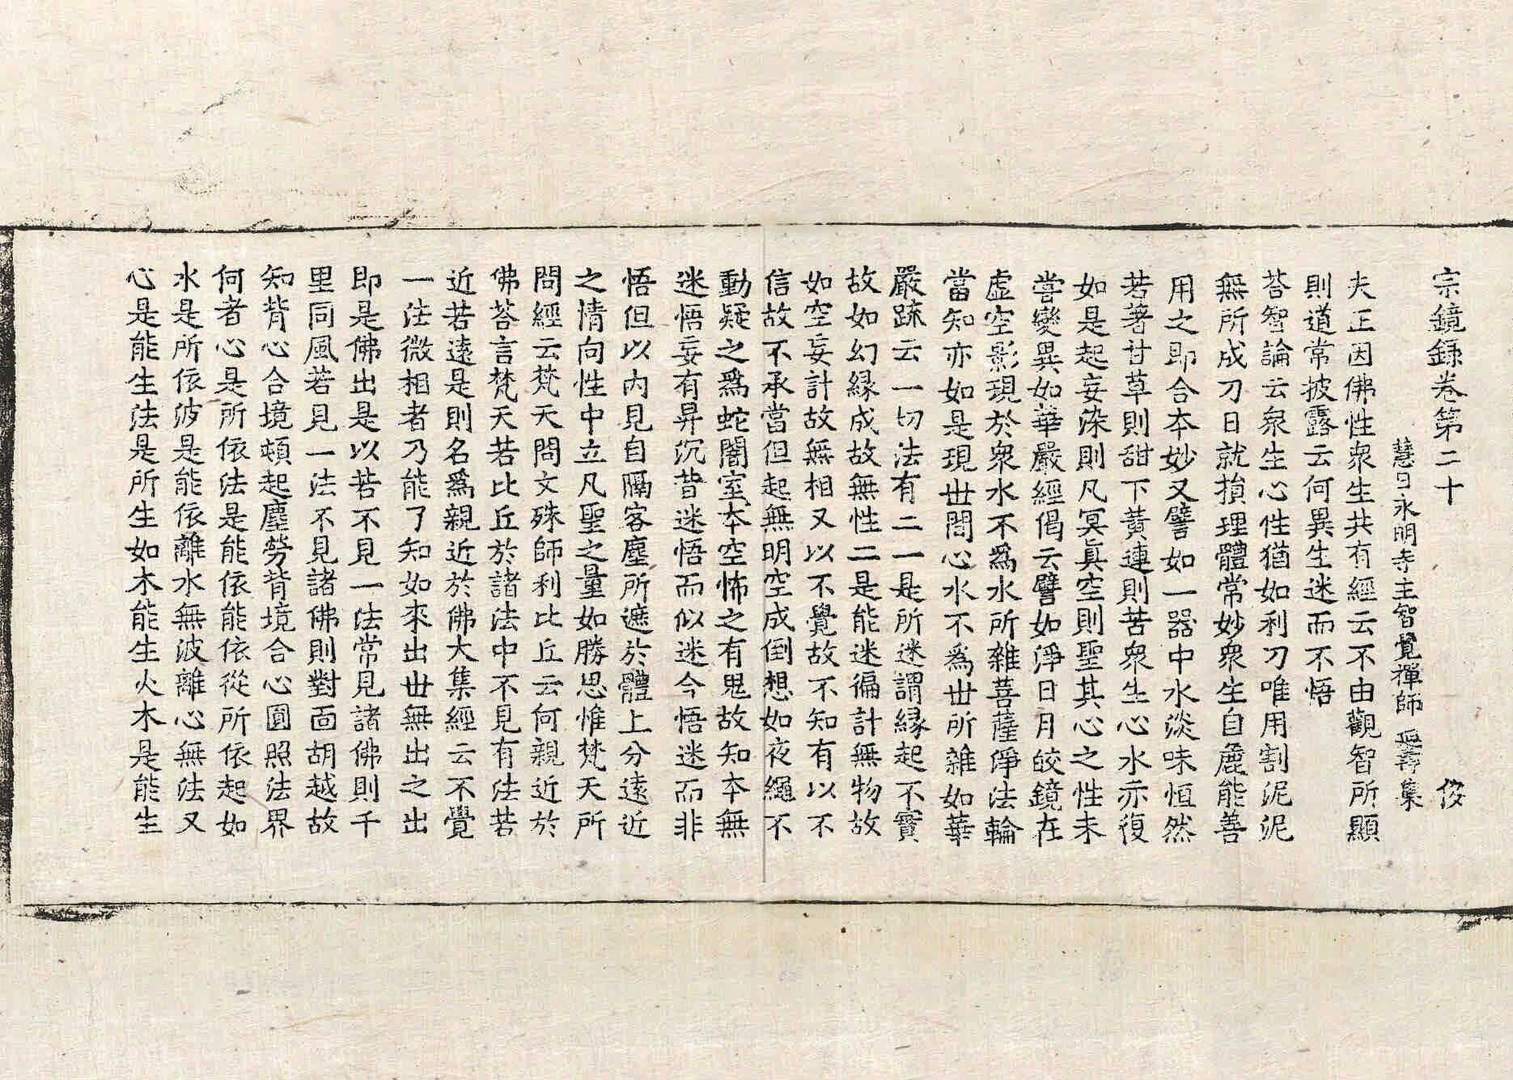 宗鏡録卷第二十 俊
慧日永明寺主智覺禪師延壽集
夫正因佛性衆生共有經云不由觀智所顯
則道常披露云何異生迷而不悟
荅智論云衆生心性猶如利刀唯用割泥泥
無所成刀日就損理體常妙衆生自麁能善
用之即合本妙又譬如一器中水淡味恒然
若著甘草則甜下黄連則苦衆生心水亦復
如是起妄染則凡冥真空則聖其心之性未
甞變異如華嚴經偈云譬如淨日月皎鏡在
虚空影現於衆水不爲水所雜菩薩淨法輪
當知亦如是現世間心水不爲世所雜如華
嚴䟽云一切法有二一是所迷謂縁起不實
故如幻縁成故無性二是能迷徧計無物故
如空妄計故無相又以不覺故不知有以不
信故不承當但起無明空成倒想如夜繩不
動疑之爲蛇闇室本空怖之有鬼故知本無
迷悟妄有昇沉昔迷悟而似迷今悟迷而非
悟但以内見自隔客塵所遮於體上分遠近
之情向性中立凡聖之量如勝思惟梵天所
問經云梵天問文殊師利比丘云何親近於
佛荅言梵天若比丘於諸法中不見有法若
近若遠是則名爲親近於佛大集經云不覺
一法微相者乃能了知如來出世無出之出
即是佛出是以若不見一法常見諸佛則千
里同風若見一法不見諸佛則對面胡越故
知背心合境頓起塵勞背境合心圓照法界
何者心是所依法是能依能依從所依起如
水是所依波是能依離水無波離心無法又
心是能生法是所生如木能生火木是能生